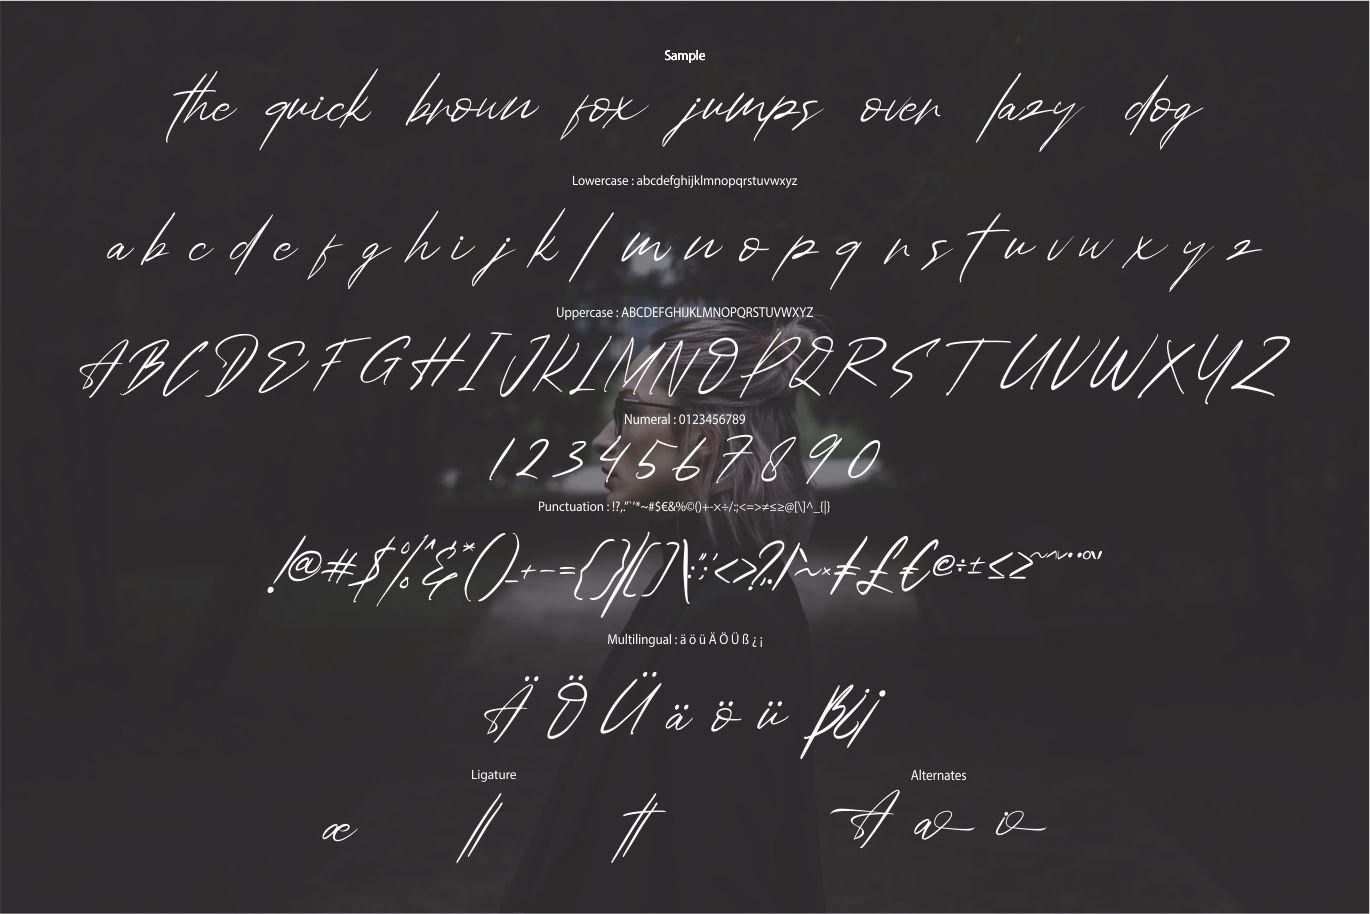 Sample
the quick brown fox jumps over lazy dog
Lowercase : abcdefghijklmnopqrstuvwxyz
a b c d e f g h i j k l m n o p q r s t u v w x y z
Uppercase : ABCDEFGHIJKLMNOPQRSTUVWXYZ
A B C D E F G H I J K L M N O P Q R S T U V W X Y Z
Numeral : 0123456789
1 2 3 4 5 6 7 8 9 0
Punctuation : !?,."`'*~#$€&%©()+-×÷/:;<=>≠≤≥@[\]^_{|}
!@#$%^&*()_+-={}|[]\:";'<>?,./`~×≠£€©÷±≤≥
Multilingual : ä ö ü Ä Ö Ü ß ¿ ¡
Ä Ö Ü ä ö ü ß¿¡
Ligature Alternates
æ ll tt A a i